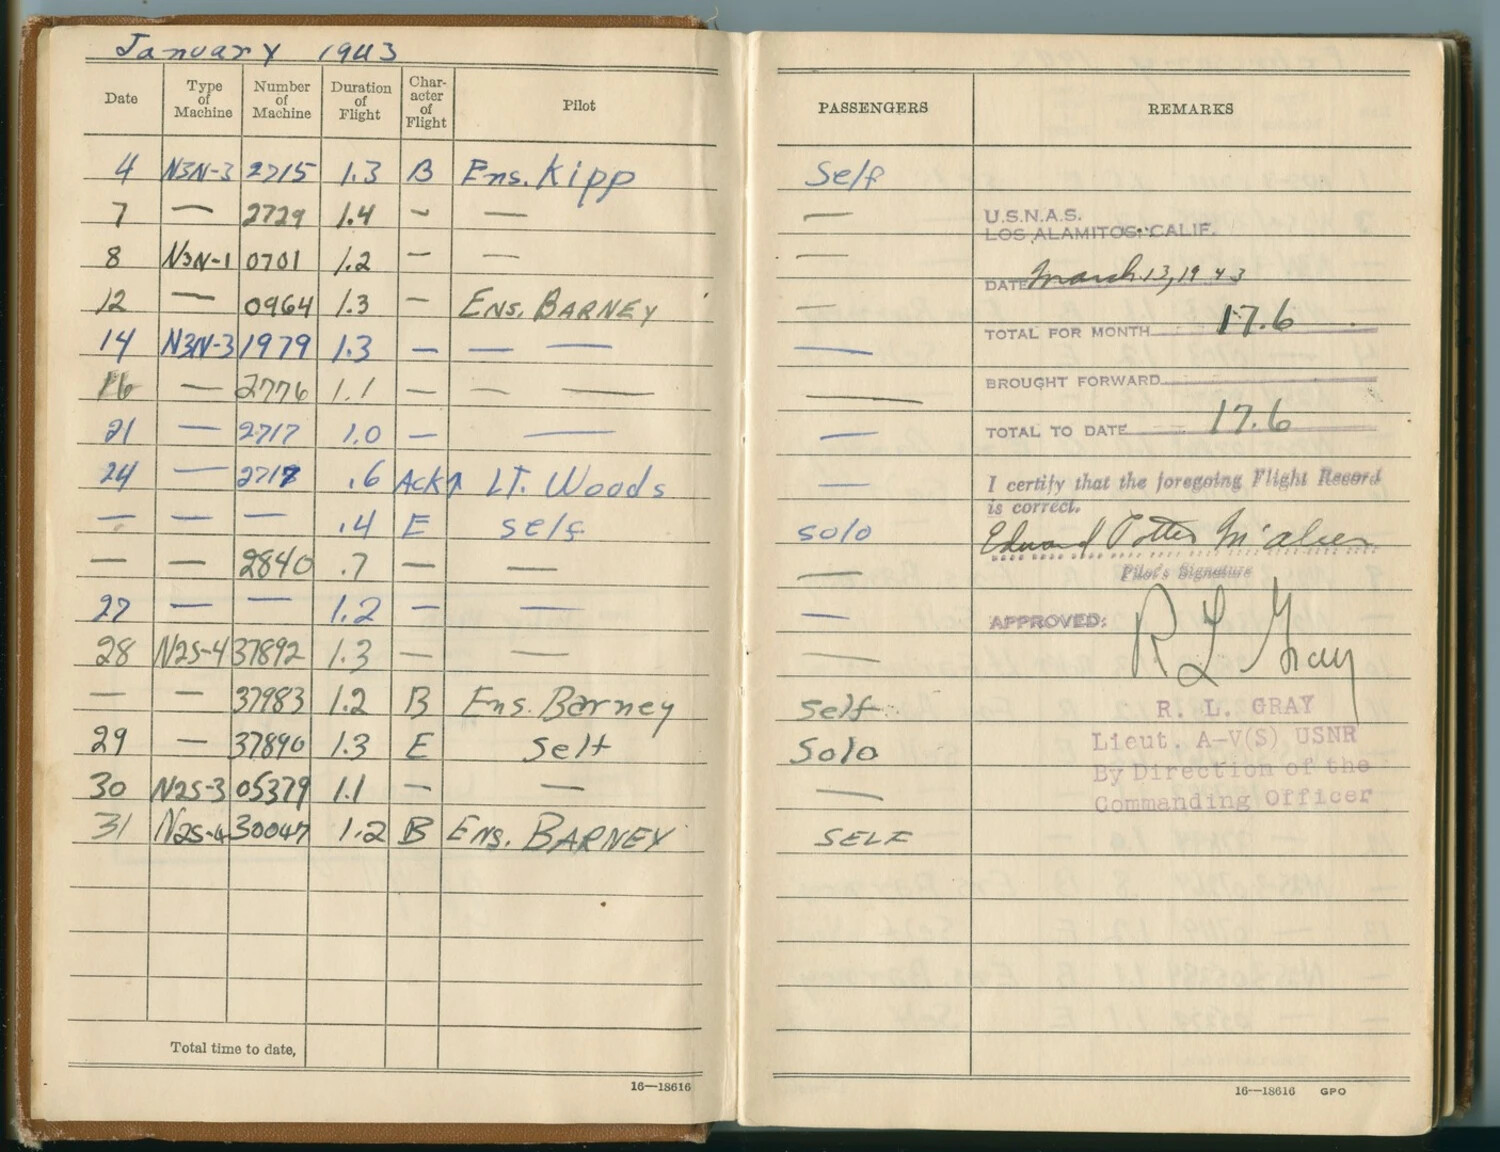 January 1943
Date Type of Machine Number of Machine Duration of Flight Char-acter of Flight Pilot PASSENGERS REMARKS
4 N3N-3 2715 1.3 B Ens. Kipp Self
7 — 2729 1.4 — — —
8 N3N-1 0701 1.2 — — —
12 — 0964 1.3 — Ens. BARNEY —
14 N3N-3 1979 1.3 — — — —
16 — 2776 1.1 — — — —
21 — 2717 1.0 — — —
24 — 2717 .6 Ack↑ LT. Woods —
— — — .4 E self solo
— — 2840 .7 — — —
27 — — 1.2 — — —
28 N2S-4 37892 1.3 — — —
— — 37983 1.2 B Ens. Barney Self
29 — 37890 1.3 E Self Solo
30 N2S-3 05379 1.1 — — —
31 N2S-4 30047 1.2 B Ens. BARNEY SELF
Total time to date,
16—18616
U.S.N.A.S.
LOS ALAMITOS, CALIF.
DATE March 13, 1943
TOTAL FOR MONTH 17.6
BROUGHT FORWARD
TOTAL TO DATE 17.6
I certify that the foregoing Flight Record
is correct.
Edward Potter
Pilot's Signature
APPROVED: R L Gray
R. L. GRAY
Lieut. A-V(S) USNR
By Direction of the
Commanding Officer
16—18616 GPO